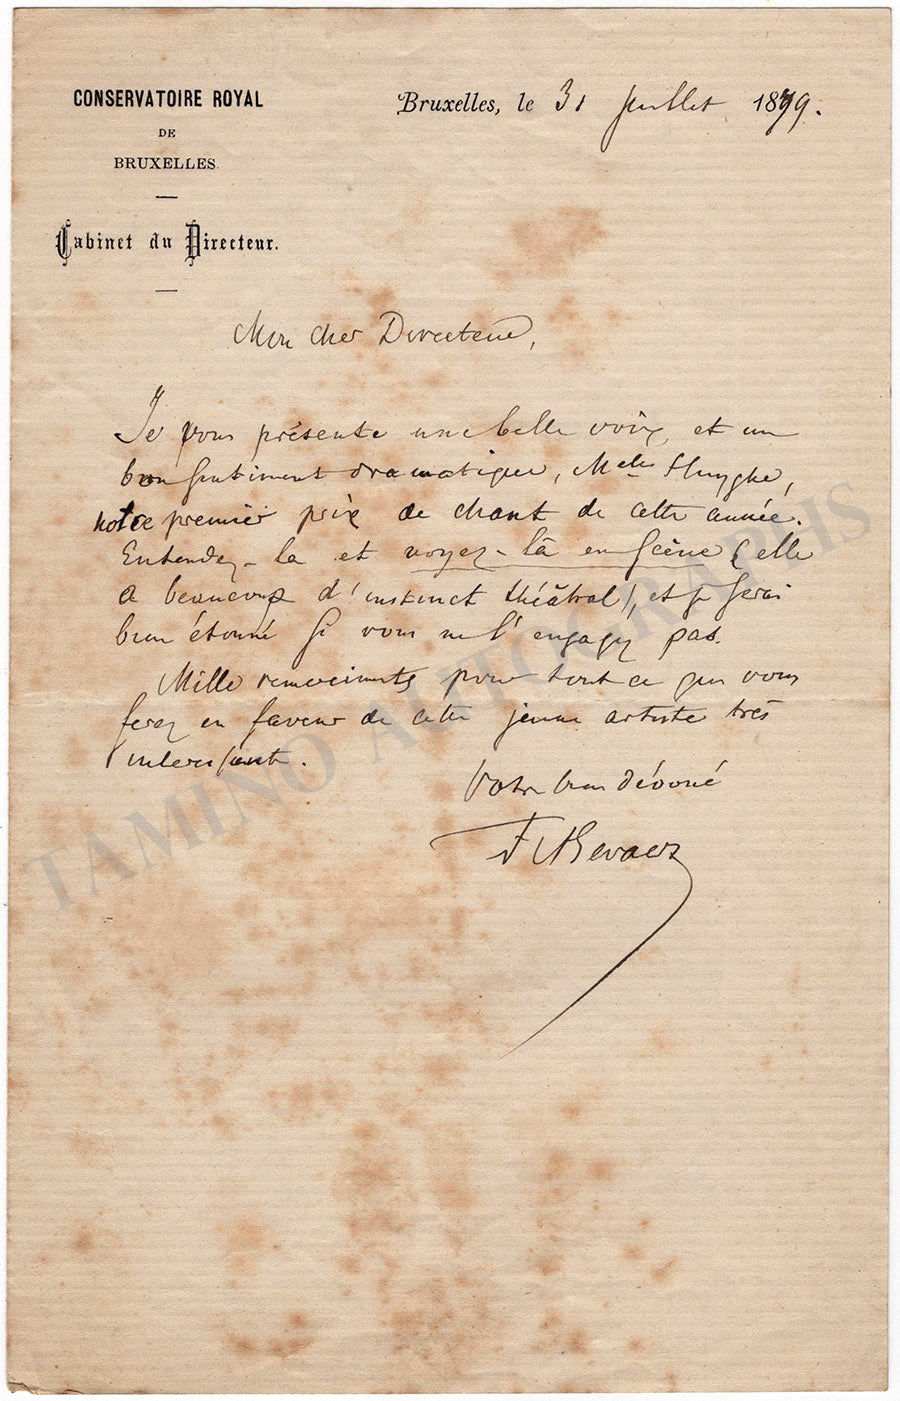 CONSERVATOIRE ROYAL
DE
BRUXELLES.
Cabinet du Directeur.
Bruxelles, le 31 juillet 1879.
Mon cher Directeur,
Je vous présente une belle voix, et un
bon sentiment dramatique, Melle
notre premier prix de chant de cette année.
Entendez-la et voyez-là en scène (elle
a beaucoup d'instinct théâtral), et je serai
bien étonné si vous ne l'engagez pas.
Mille remerciments pour tout ce que vous
ferez en faveur de cette jeune artiste très
intéressante.
Votre bien dévoué
F A Gevaert
TAMINO AUTOGRAPHS